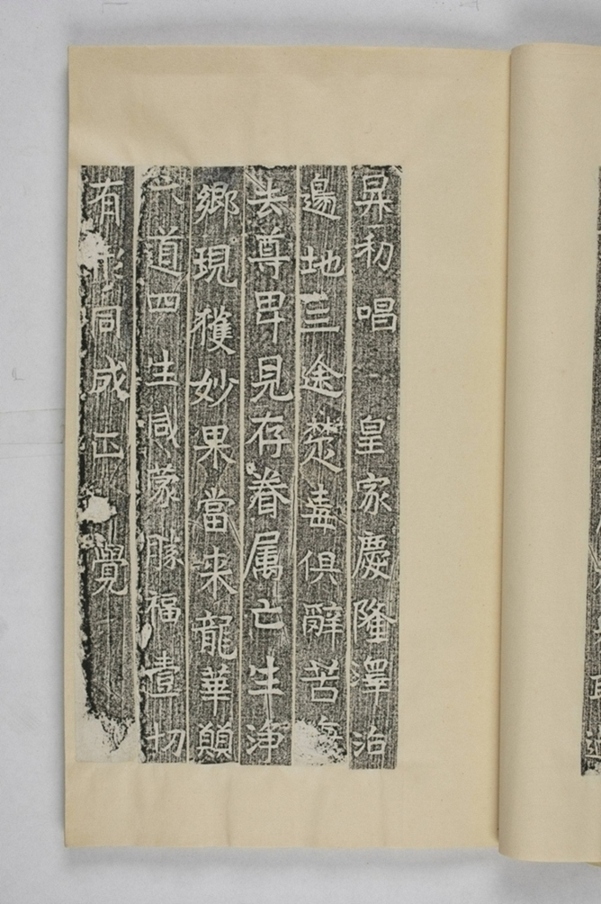 昇初唱　皇家慶隆澤洽
邊地三途楚毒俱辭苦海
去尊卑見存眷属亡生淨
鄉現獲妙果當来龍華願
六道四生咸蒙勝福遺切
有形同成正覺